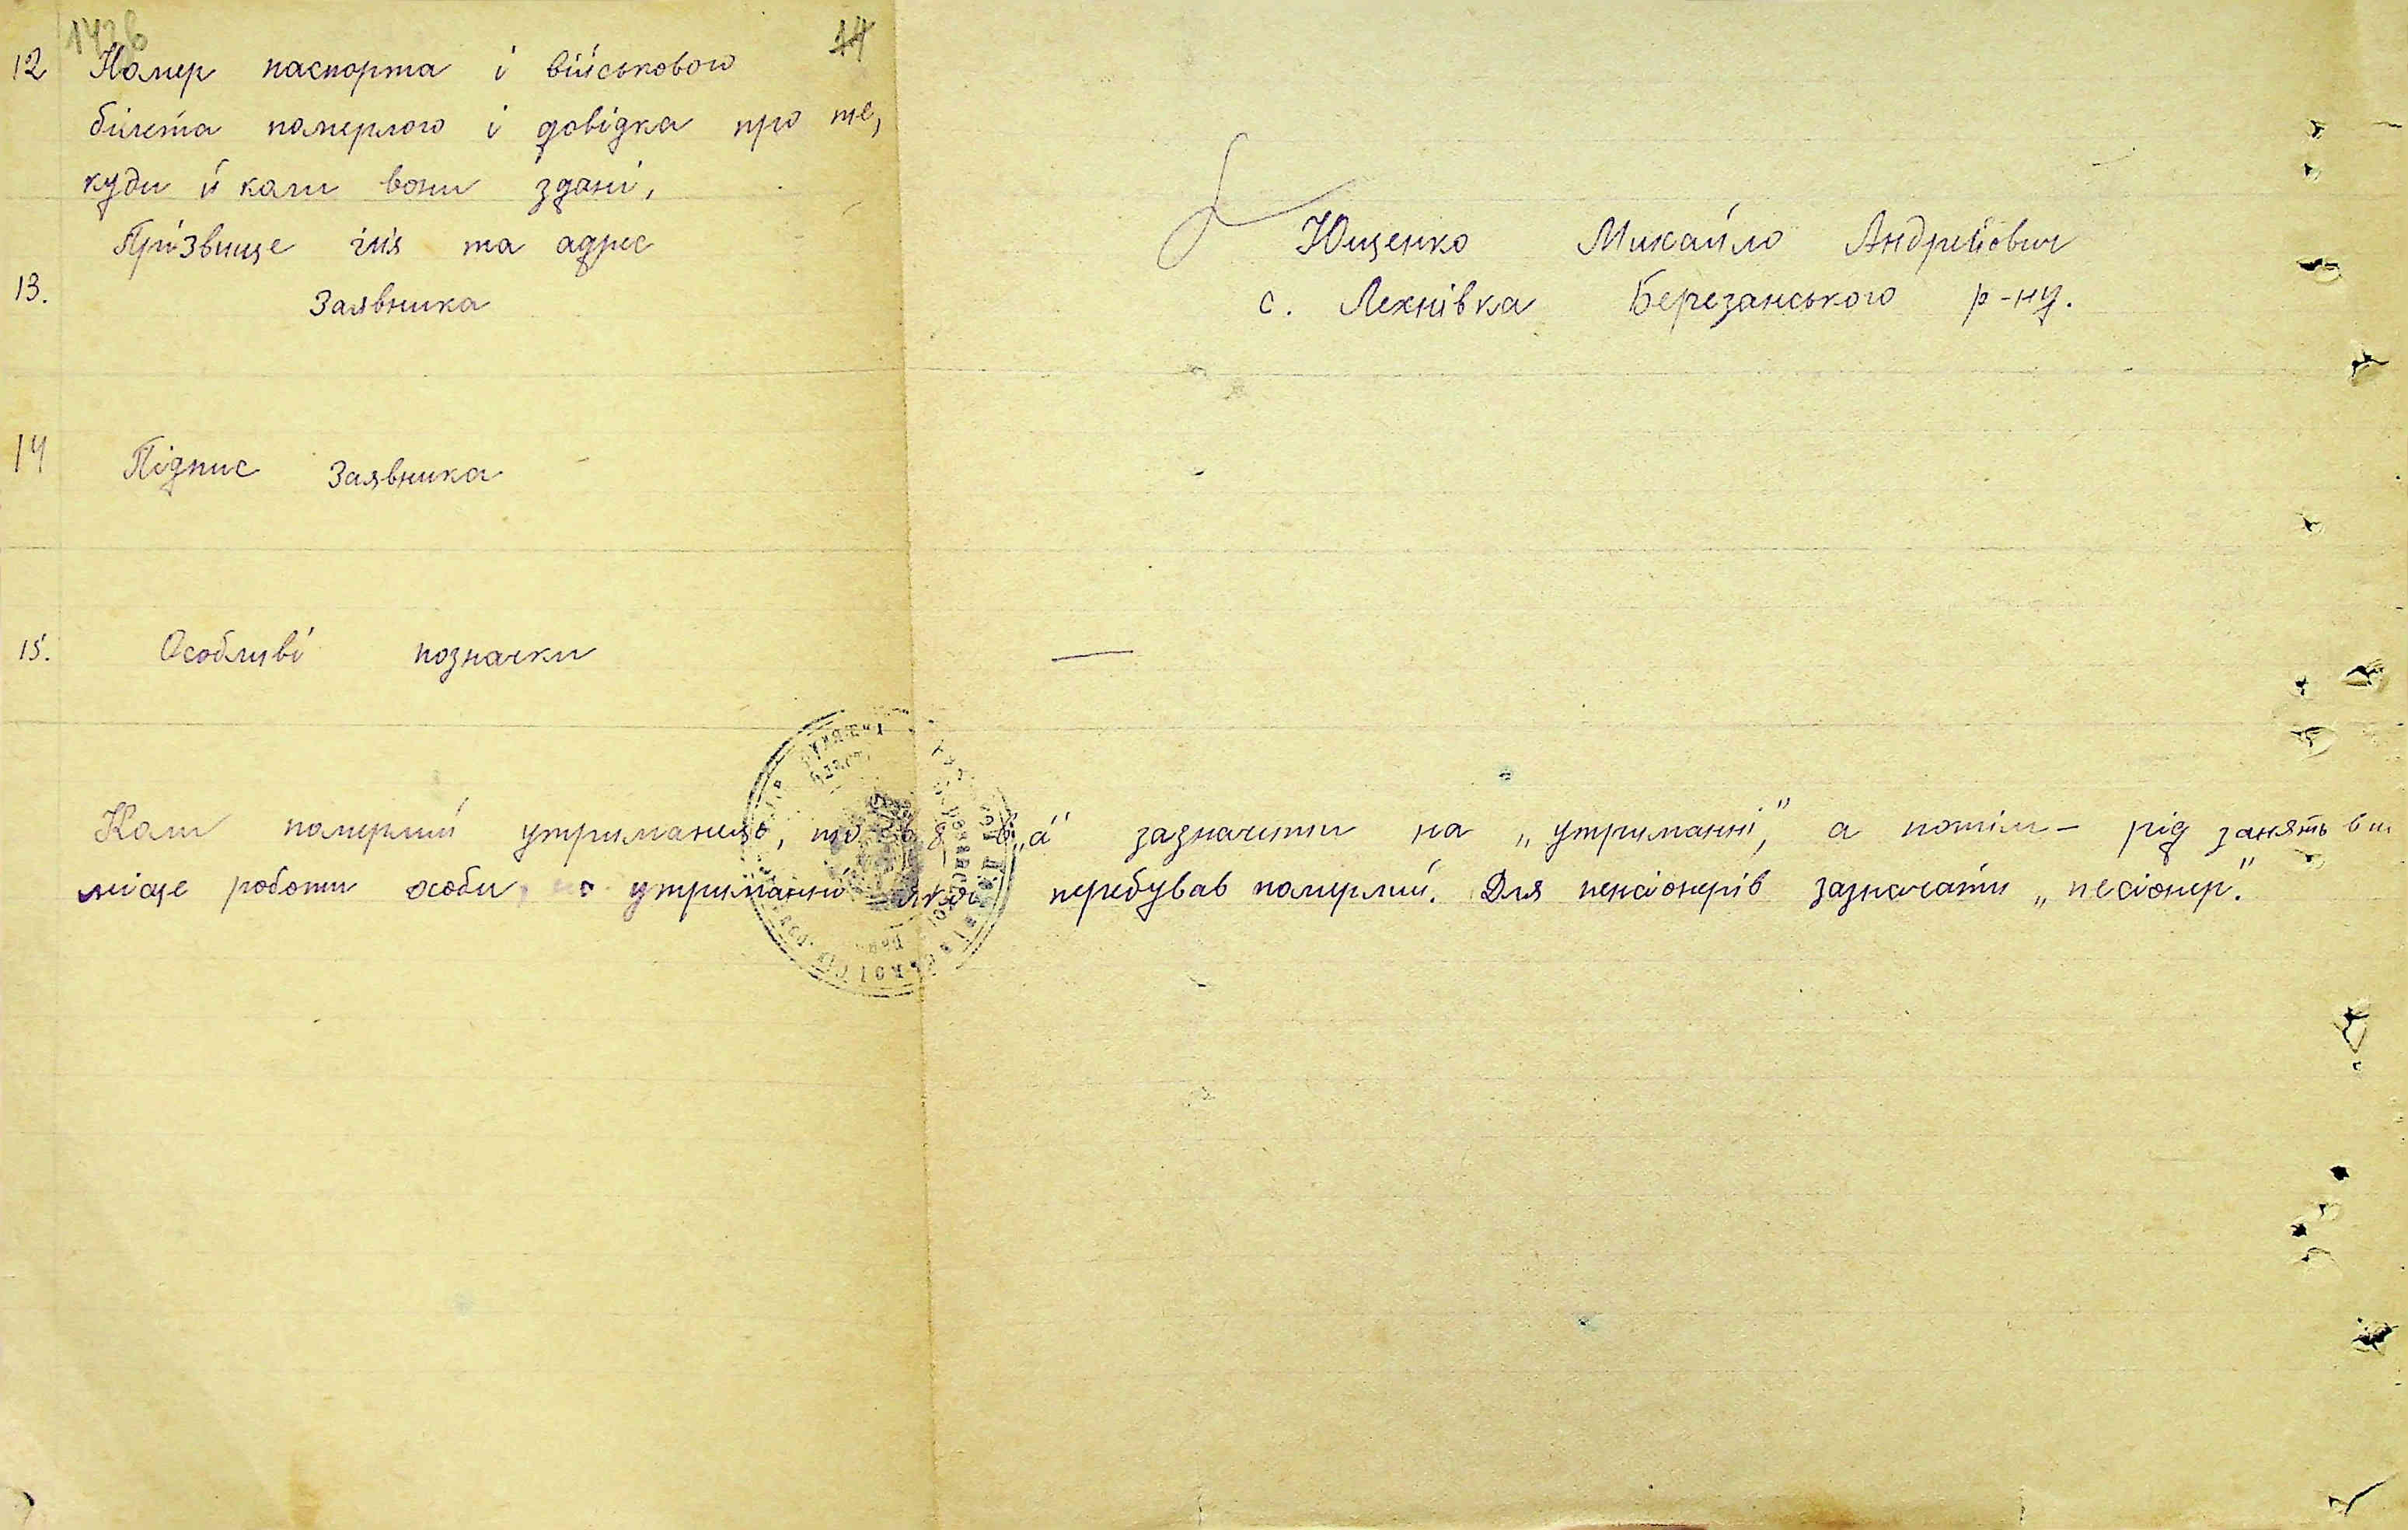 142б 14
12 Номер паспорта і військового
білета померлого і довідка про те,
куди й коли вони здані,
Прізвище ім'я та адрес
13. Заявника
Ющенко Михайло Андрійович
с. Лехнівка Березанського р-ну.
14 Підпис Заявника
15. Особливі позначки —
Коли померлий утриманець, то в 8 „а" зазначити на „утриманні," а потім – рід занять в ш
місце роботи особи, на утриманні якої перебував померлий. Для пенсіонерів зазначати „песіонер."